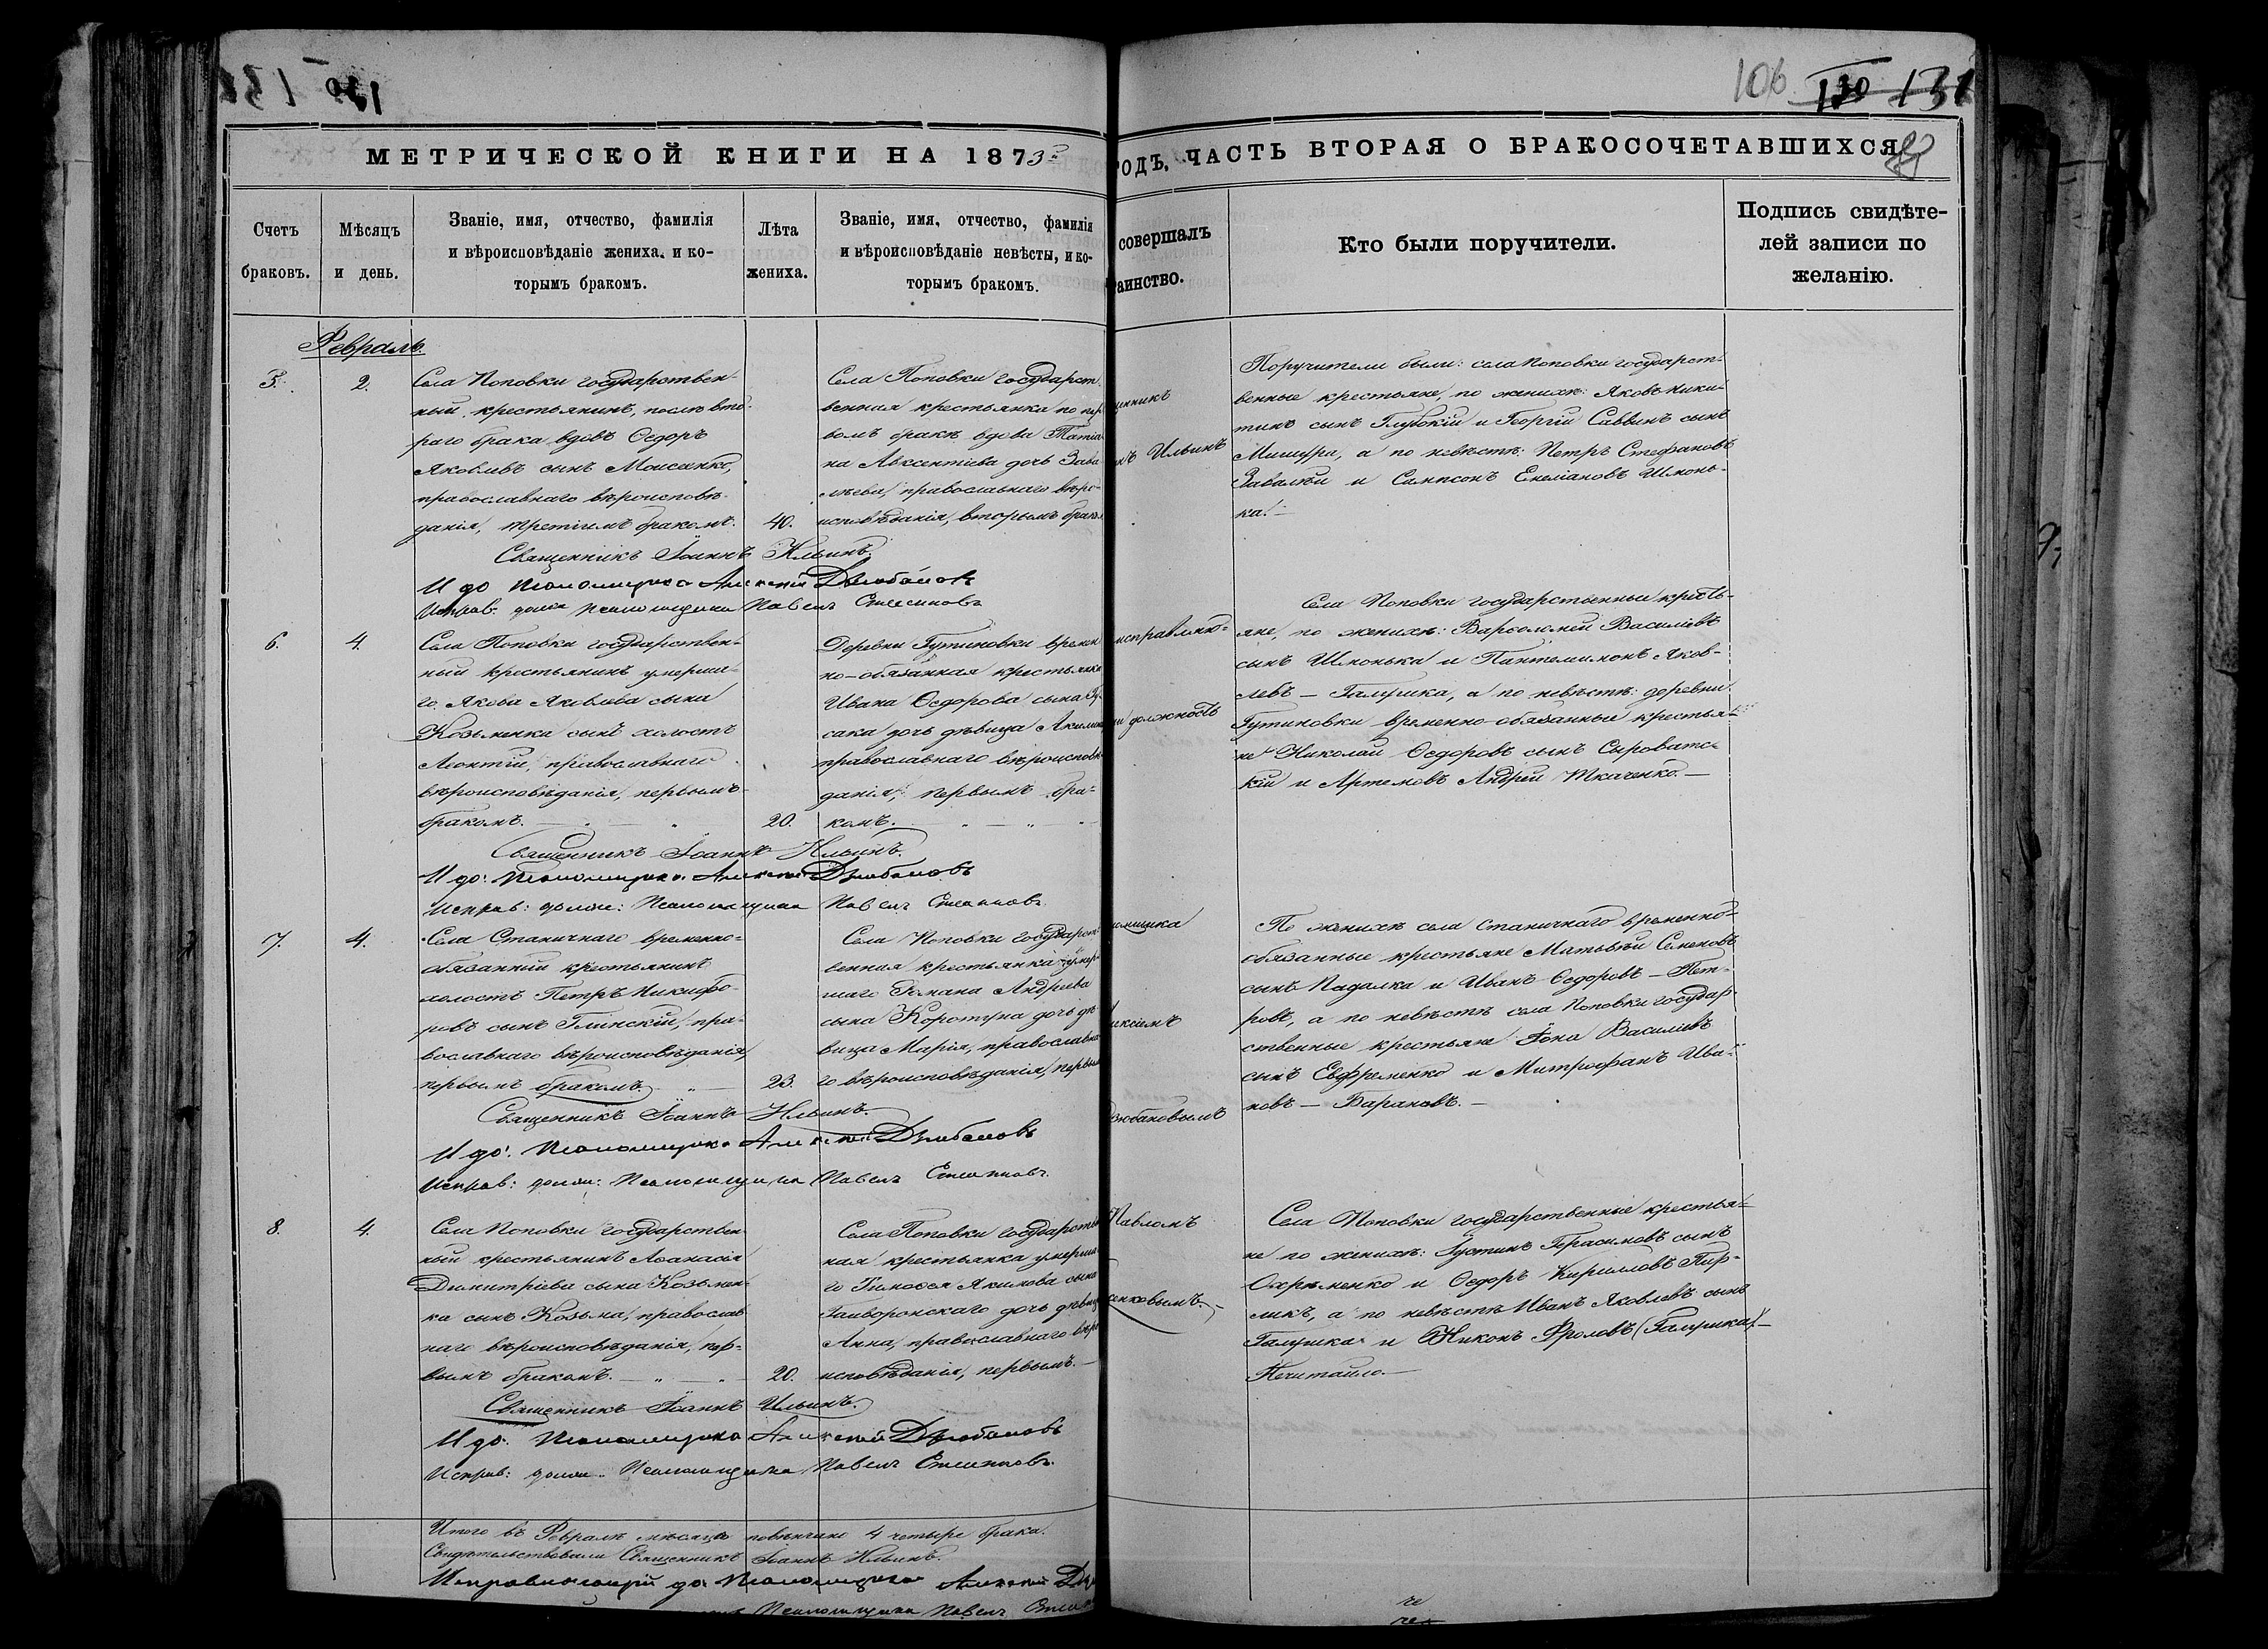 106. 130 131
МЕТРИЧЕСКОЙ КНИГИ НА 1873
ГОДЪ, ЧАСТЬ ВТОРАЯ О БРАКОСОЧЕТАВШИХСЯ
Счетъ браковъ.
Мѣсяцъ и день.
Званіе, имя, отчество, фамилія
и вѣроисповѣданіе жениха, и ко-
торымъ бракомъ.
Лѣта
жениха.
Званіе, имя, отчество, фамилія
и вѣроисповѣданіе невѣсты, и ко-
торымъ бракомъ.
совершалъ
таинство.
Кто были поручители.
Подпись свидѣте-
лей записи по
желанію.
Февраль.
5. 2.
Села Поповки государствен-
ный крестьянинъ, послѣ вто-
раго брака вдовъ Ѳедоръ
Яковлевъ сынъ Моисѣенко,
православнаго вѣроисповѣ-
данія, третіимъ бракомъ. 40.
Села Поповки государст-
венная крестьянка по пер-
вомъ бракѣ вдова Татіа-
на Авксентіева дочь Зава-
лѣева, православнаго вѣро-
исповѣданія, вторымъ бракомъ
щенникъ
нъ Ильинъ
Поручители были: села Поповки государст-
венные крестьяне, по женихѣ: Яковъ Ники-
тинъ сынъ Глубокій и Георгій Саввинъ сынъ
Мишура, а по невѣстѣ: Петръ Стефановъ
Завалѣй и Сампсонъ Емеліановъ Шмонь-
ка.
Священникъ Іоаннъ Ильинъ.
И до Псаломщика Алексѣй Дзюбановъ
Исправ: долж: Псаломщика Павелъ
6. 4.
Села Поповки государствен-
ный крестьянинъ умерша-
го Якова Яковлева сына
Козьменка сынъ холостъ
Леонтій, православнаго
вѣроисповѣданія, первымъ
бракомъ. 20.
Деревни Гутиновки времен-
но-обязанная крестьянка
Ивана Ѳедорова сына
сака дочь дѣвица Акилина
православнаго вѣроисповѣ-
данія, первымъ бра-
комъ.
исправляю-
щи должность
Села Поповки государственные кресть-
яне, по женихѣ: Варѳоломей Василіевъ
сынъ Шмонька и Пантелимонъ Яков-
левъ — Галушка, а по невѣстѣ: деревни
Гутиновки временно-обязанные крестья-
не Николай Ѳедоровъ сынъ Сыроватс-
кій и Артемовъ Андрей Ткаченко. —
Священникъ Іоаннъ Ильинъ.
И до: Псаломщика Алексѣй Дзюбановъ
Исправ: долж: Псаломщика Павелъ
7. 4.
Села Станичнаго временно-
обязанный крестьянинъ
холостъ Петръ Никифо-
ровъ сынъ Глинскій, пра-
вославнаго вѣроисповѣданія,
первымъ бракомъ. 23.
Села Поповки государст-
венная крестьянка умер-
шаго Романа Андреева
сына Коротуна дочь дѣ-
вица Марія, православна-
го вѣроисповѣданія, первымъ
омщика
ексіемъ
Дзюбановымъ
По женихѣ села Станичнаго временно-
обязанные крестьяне Матвѣй Семеновъ
сынъ Падалка и Иванъ Ѳедоровъ — Пет-
ровъ, а по невѣстѣ села Поповки государ-
ственные крестьяне Іона Василіевъ
сынъ Евфременко и Митрофанъ Ива-
новъ — Барановъ. —
Священникъ Іоаннъ Ильинъ.
И до: Псаломщика Алексѣй Дзюбановъ
Исправ: долж: Псаломщика Павелъ
8. 4.
Села Поповки государствен-
ный крестьянинъ Аѳанасія
Димитріева сына Козьмен-
ка сынъ Козьма, православ-
наго вѣроисповѣданія, пер-
вымъ бракомъ. 20.
Села Поповки государствен-
ная крестьянка умерша-
го Тимоѳея Акимова сына
Заиворонскаго дочь дѣвица
Анна, православнаго вѣро-
исповѣданія, первымъ. —
Павломъ
енковымъ.
Села Поповки государственные крестья-
не по женихѣ: Іустинъ Герасимовъ сынъ
Охрѣменко и Ѳедоръ Кирилловъ Пир-
ликъ, а по невѣстѣ Иванъ Яковлевъ сынъ
Галушка и Никонъ Фроловъ (Галушка) —
Нечитайло. —
Священникъ Іоаннъ Ильинъ.
И до: Псаломщика Алексѣй Дзюбановъ
Исправ: долж: Псаломщика Павелъ
Итого въ Февралѣ мѣсяцѣ повѣнчано 4 четыре брака.
Свидѣтельствовали Священникъ Іоаннъ Ильинъ.
Исправляющій до: Псаломщика Алексѣй
Псаломщика Павелъ